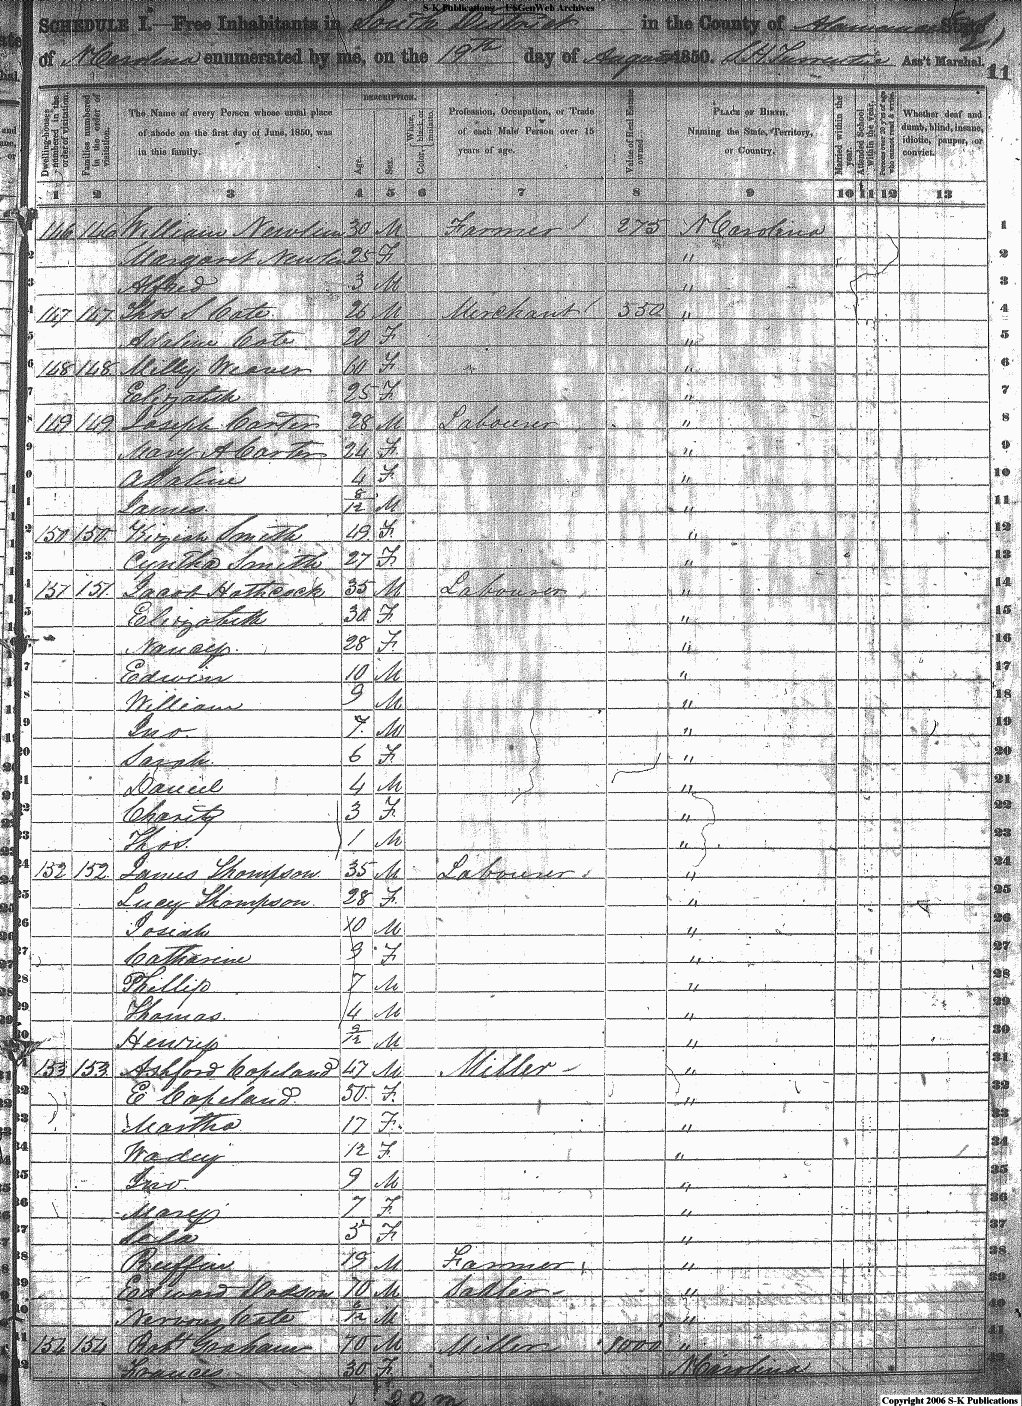 S-K Publications - USGenWeb Archives
SCHEDULE I.—Free Inhabitants in South District in the County of Alamance State
of N Carolina enumerated by me, on the 19th day of August 1850. Ass't Marshal. 11
DESCRIPTION.
Dwelling-houses numbered in the order of visitation.
Families numbered in the order of visitation.
The Name of every Person whose usual place of abode on the first day of June, 1850, was in this family.
Age.
Sex.
Color, White, black, or mulatto.
Profession, Occupation, or Trade of each Male Person over 15 years of age.
Value of Real Estate owned
PLACE OF BIRTH, Naming the State, Territory, or Country.
Married within the year.
Attended School within the year.
Persons over 20 y'rs of age who cannot read & write.
Whether deaf and dumb, blind, insane, idiotic, pauper, or convict.
1 2 3 4 5 6 7 8 9 10 11 12 13
146 146 William Newlin 30 M Farmer 275 N Carolina 1
Margaret Newlin 25 F " 2
Alfred 3 M " 3
147 147 Thos S Cate 26 M Merchant 550 " 4
Adaline Cate 20 F " 5
148 148 Milley Weaver 60 F " 6
Elizabeth 25 F " 7
149 149 Joseph Carter 28 M Labourer " 8
Mary A Carter 24 F " 9
Adaline 4 F " 10
James 8/12 M " 11
150 150 Kiziah Smith 49 F " 12
Cyntha Smith 27 F " 13
151 151 Jacob Hathcock 35 M Labourer " 14
Elizabeth 30 F " 15
Nancy 28 F " 16
Edwin 10 M " 17
William 9 M " 18
Jno. 7 M " 19
Sarah 6 F " 20
Daniel 4 M " 21
Charity 3 F " 22
Thos. 1 M " 23
152 152 James Thompson 35 M Labourer " 24
Lucy Thompson 28 F " 25
Josiah 10 M " 26
Catharine 9 F " 27
Phillip 7 M " 28
Thomas 4 M " 29
Henry 9/12 M " 30
153 153 Ashford Copeland 47 M Miller " 31
E Copeland 50 F " 32
Martha 17 F " 33
Wadey 12 F " 34
Jno. 9 M " 35
Mary 7 F " 36
F " 37
Ruffin 19 M Farmer " 38
Edward Dodson 70 M Sadler " 39
Cate M " 40
154 154 Robt Graham 70 M Miller 1000 " 41
Frances 30 F N Carolina 42
Copyright 2006 S-K Publications